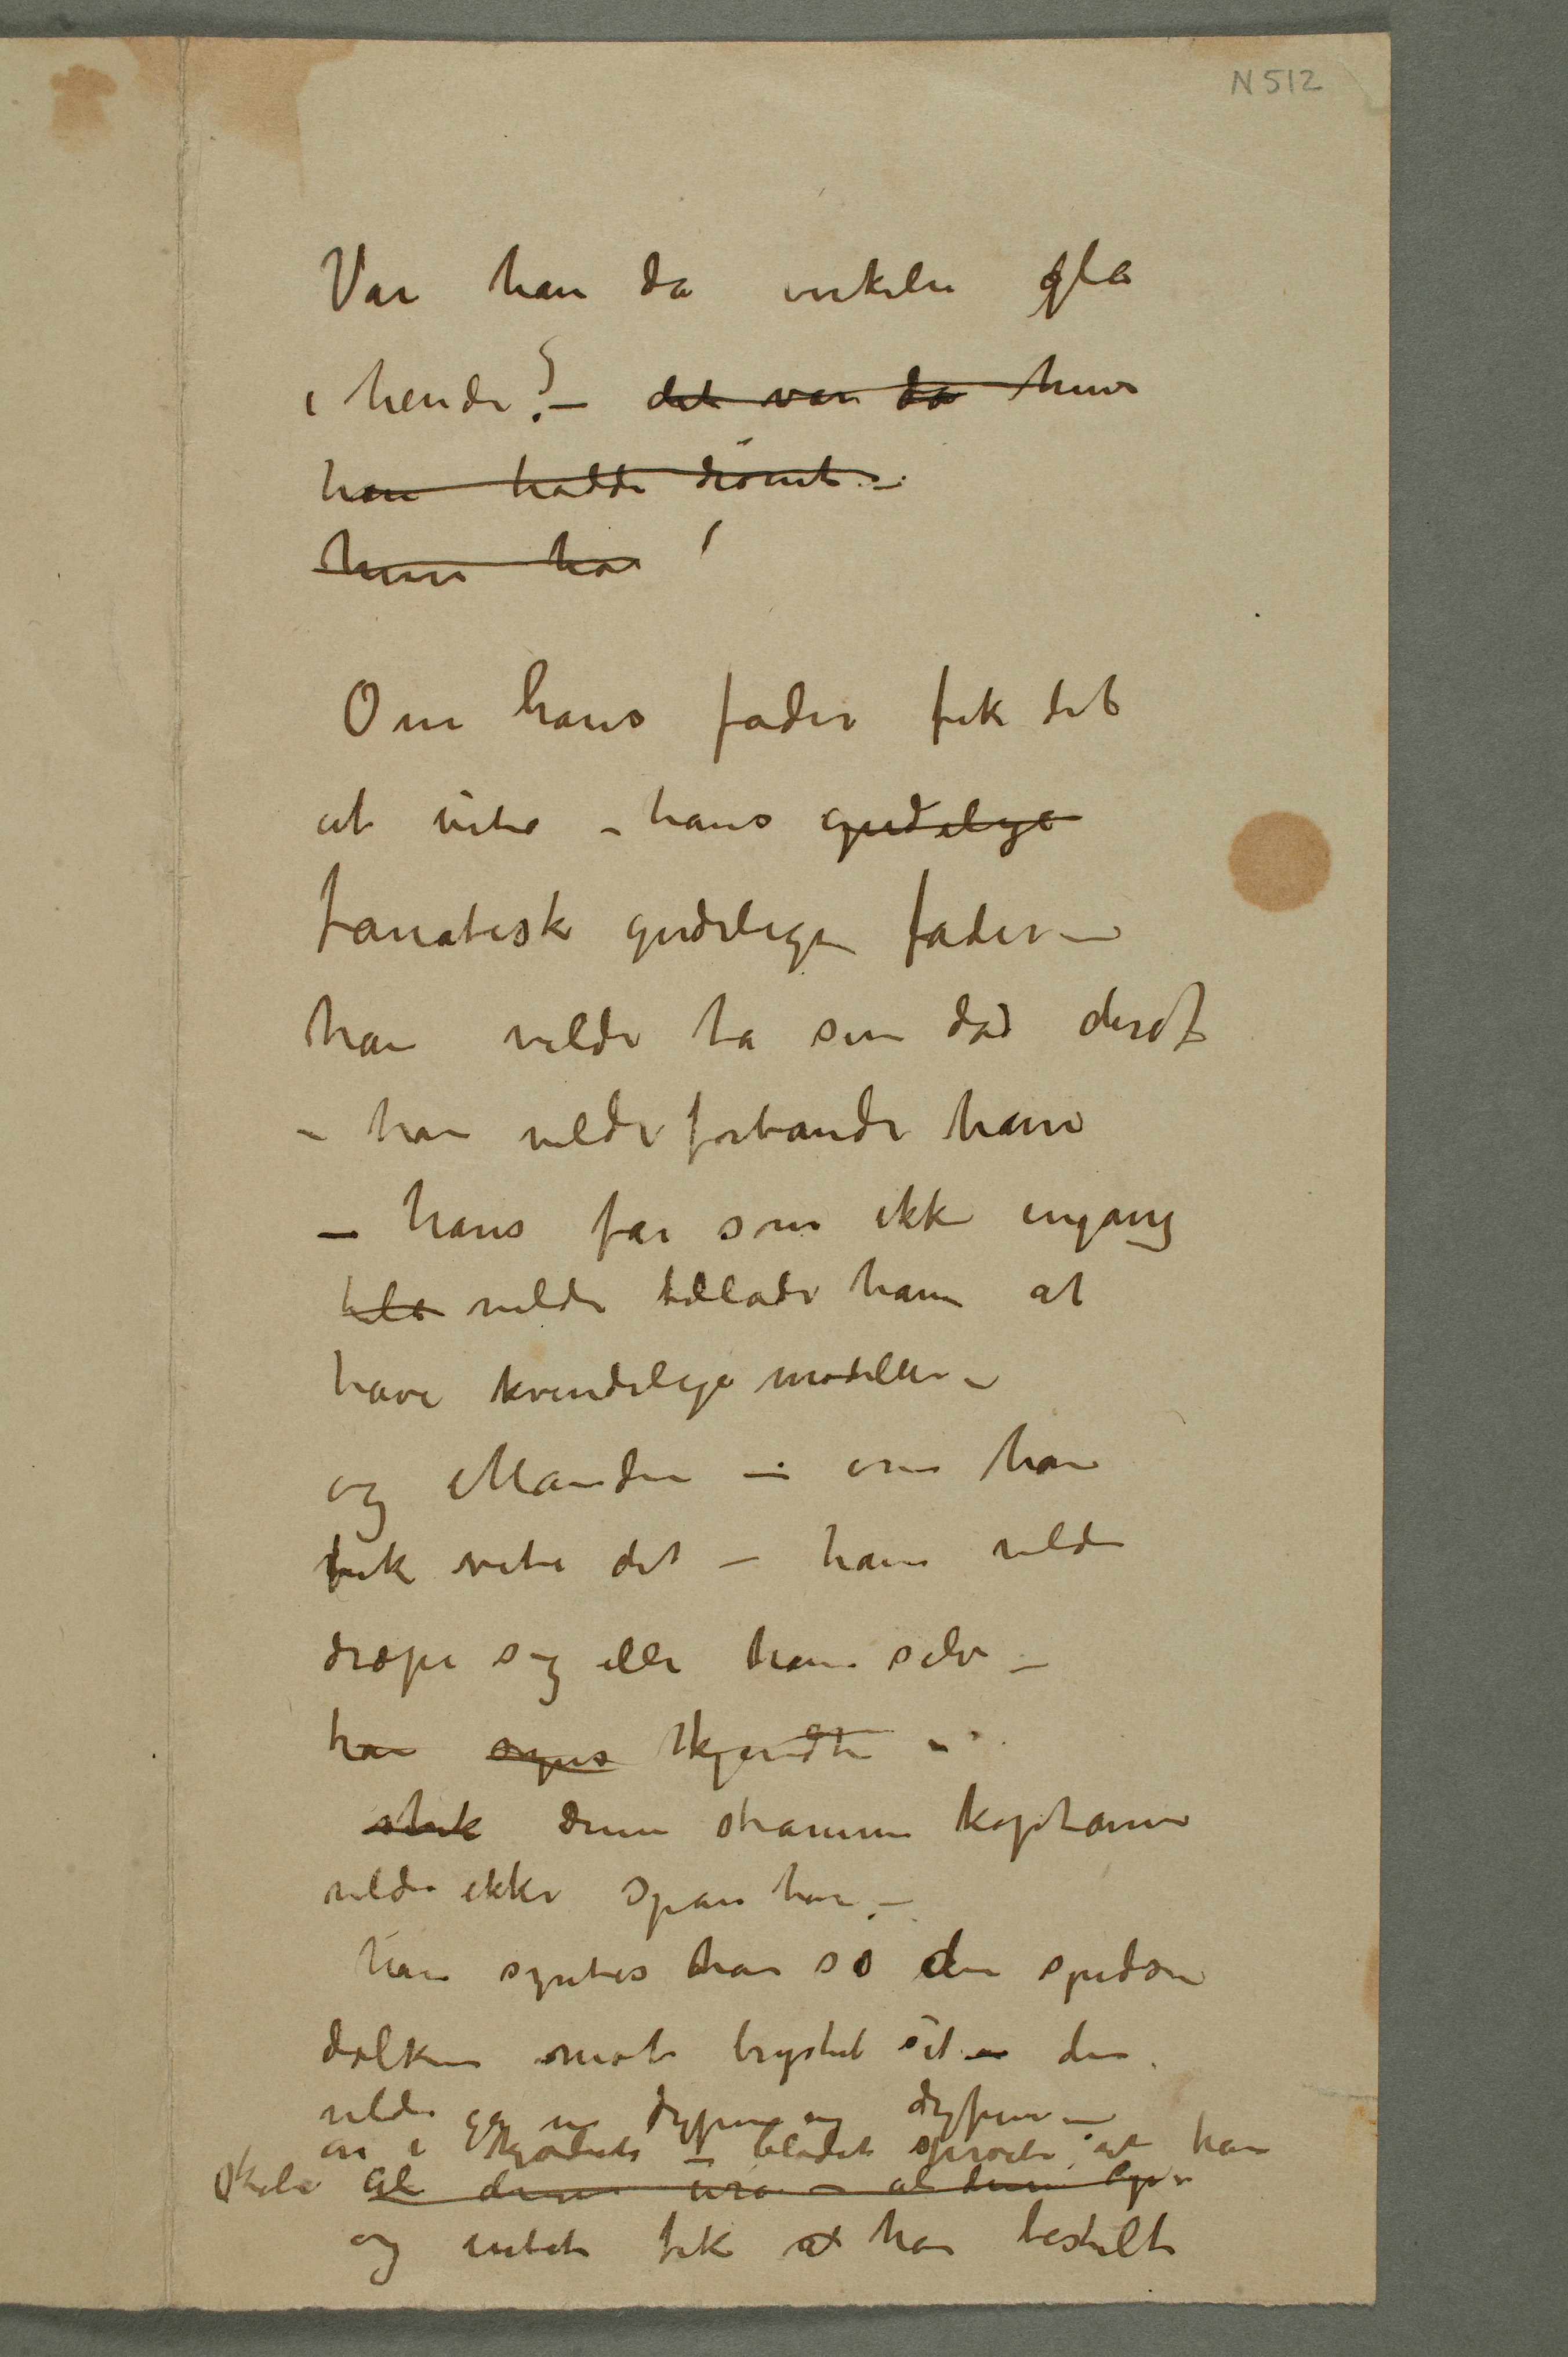 N 512
Var han da virkelig gla
i hende? – det var da hun
han hadde drømt –
hun ha
Om hans fader fik det
at vite – hans gudelige
fanatisk gudelige fader –
han vilde ta sin død deraf
– han vilde forbande ham
– hans far som ikke engang
tila vilde tillade ham at
have kvindelige modeller –
og Manden – om han
fik vite det – han vilde
dræpe sig eller ham selv –
han synes kjendte –
strik denne stramme kaptain
vilde ikke spare ham. –
han syntes han så den spidse
dolken mot brystet sit – den
vilde gå in dypere og dypere –
in i kjødet – blodet sprøite at han
skalv al denne uro – al denne
og intet fik at han bestilt